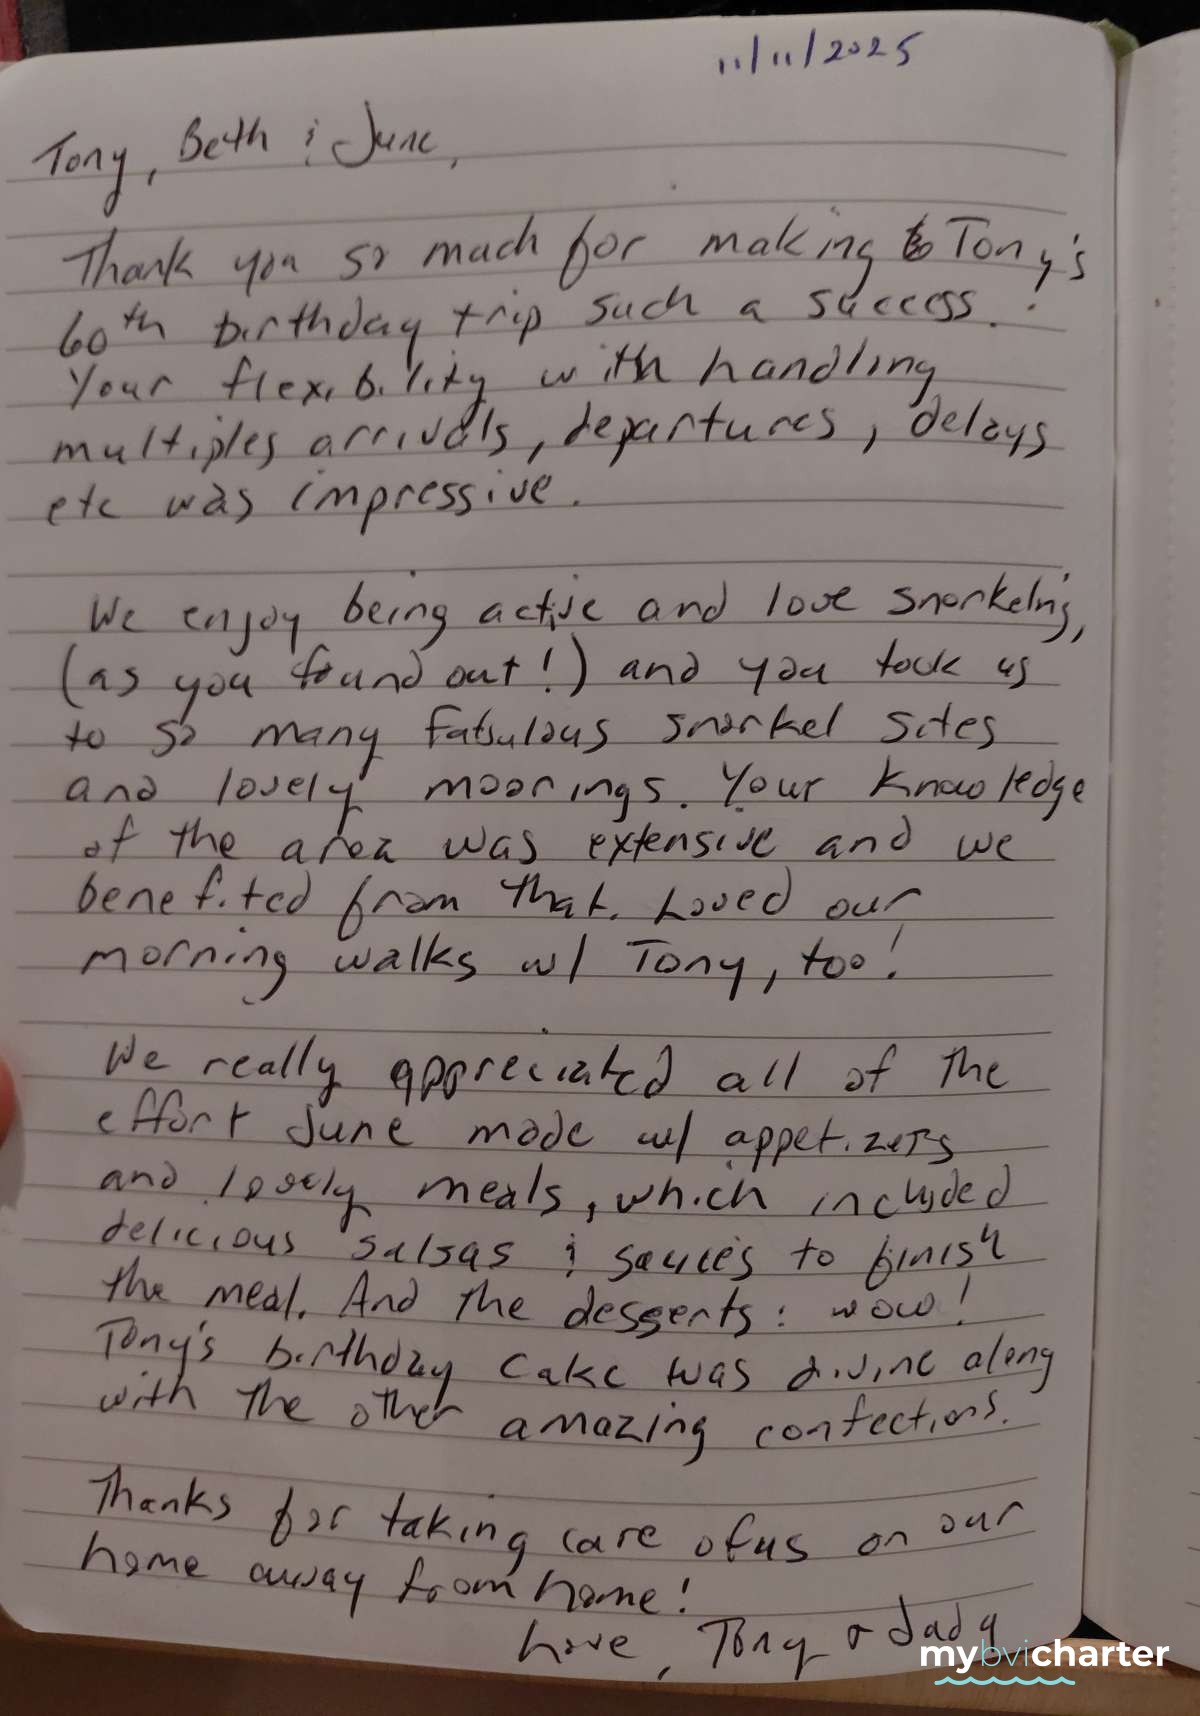 11/11/2025
Tony, Beth & June,
Thank you so much for making Tony's
60th birthday trip such a success.
Your flexibility with handling
multiples arrivals, departures, delays
etc was impressive.
We enjoy being active and love snorkeling,
(as you found out!) and you took us
to so many fabulous snorkel sites
and lovely moorings. Your knowledge
of the area was extensive and we
benefited from that. Loved our
morning walks w/ Tony, too!
We really appreciated all of the
effort June made w/ appetizers
and lovely meals, which included
delicious salsas & sauces to finish
the meal. And the desserts: wow!
Tony's birthday cake was divine along
with the other amazing confections.
Thanks for taking care of us on our
home away from home!
Love, Tony &
mybvicharter